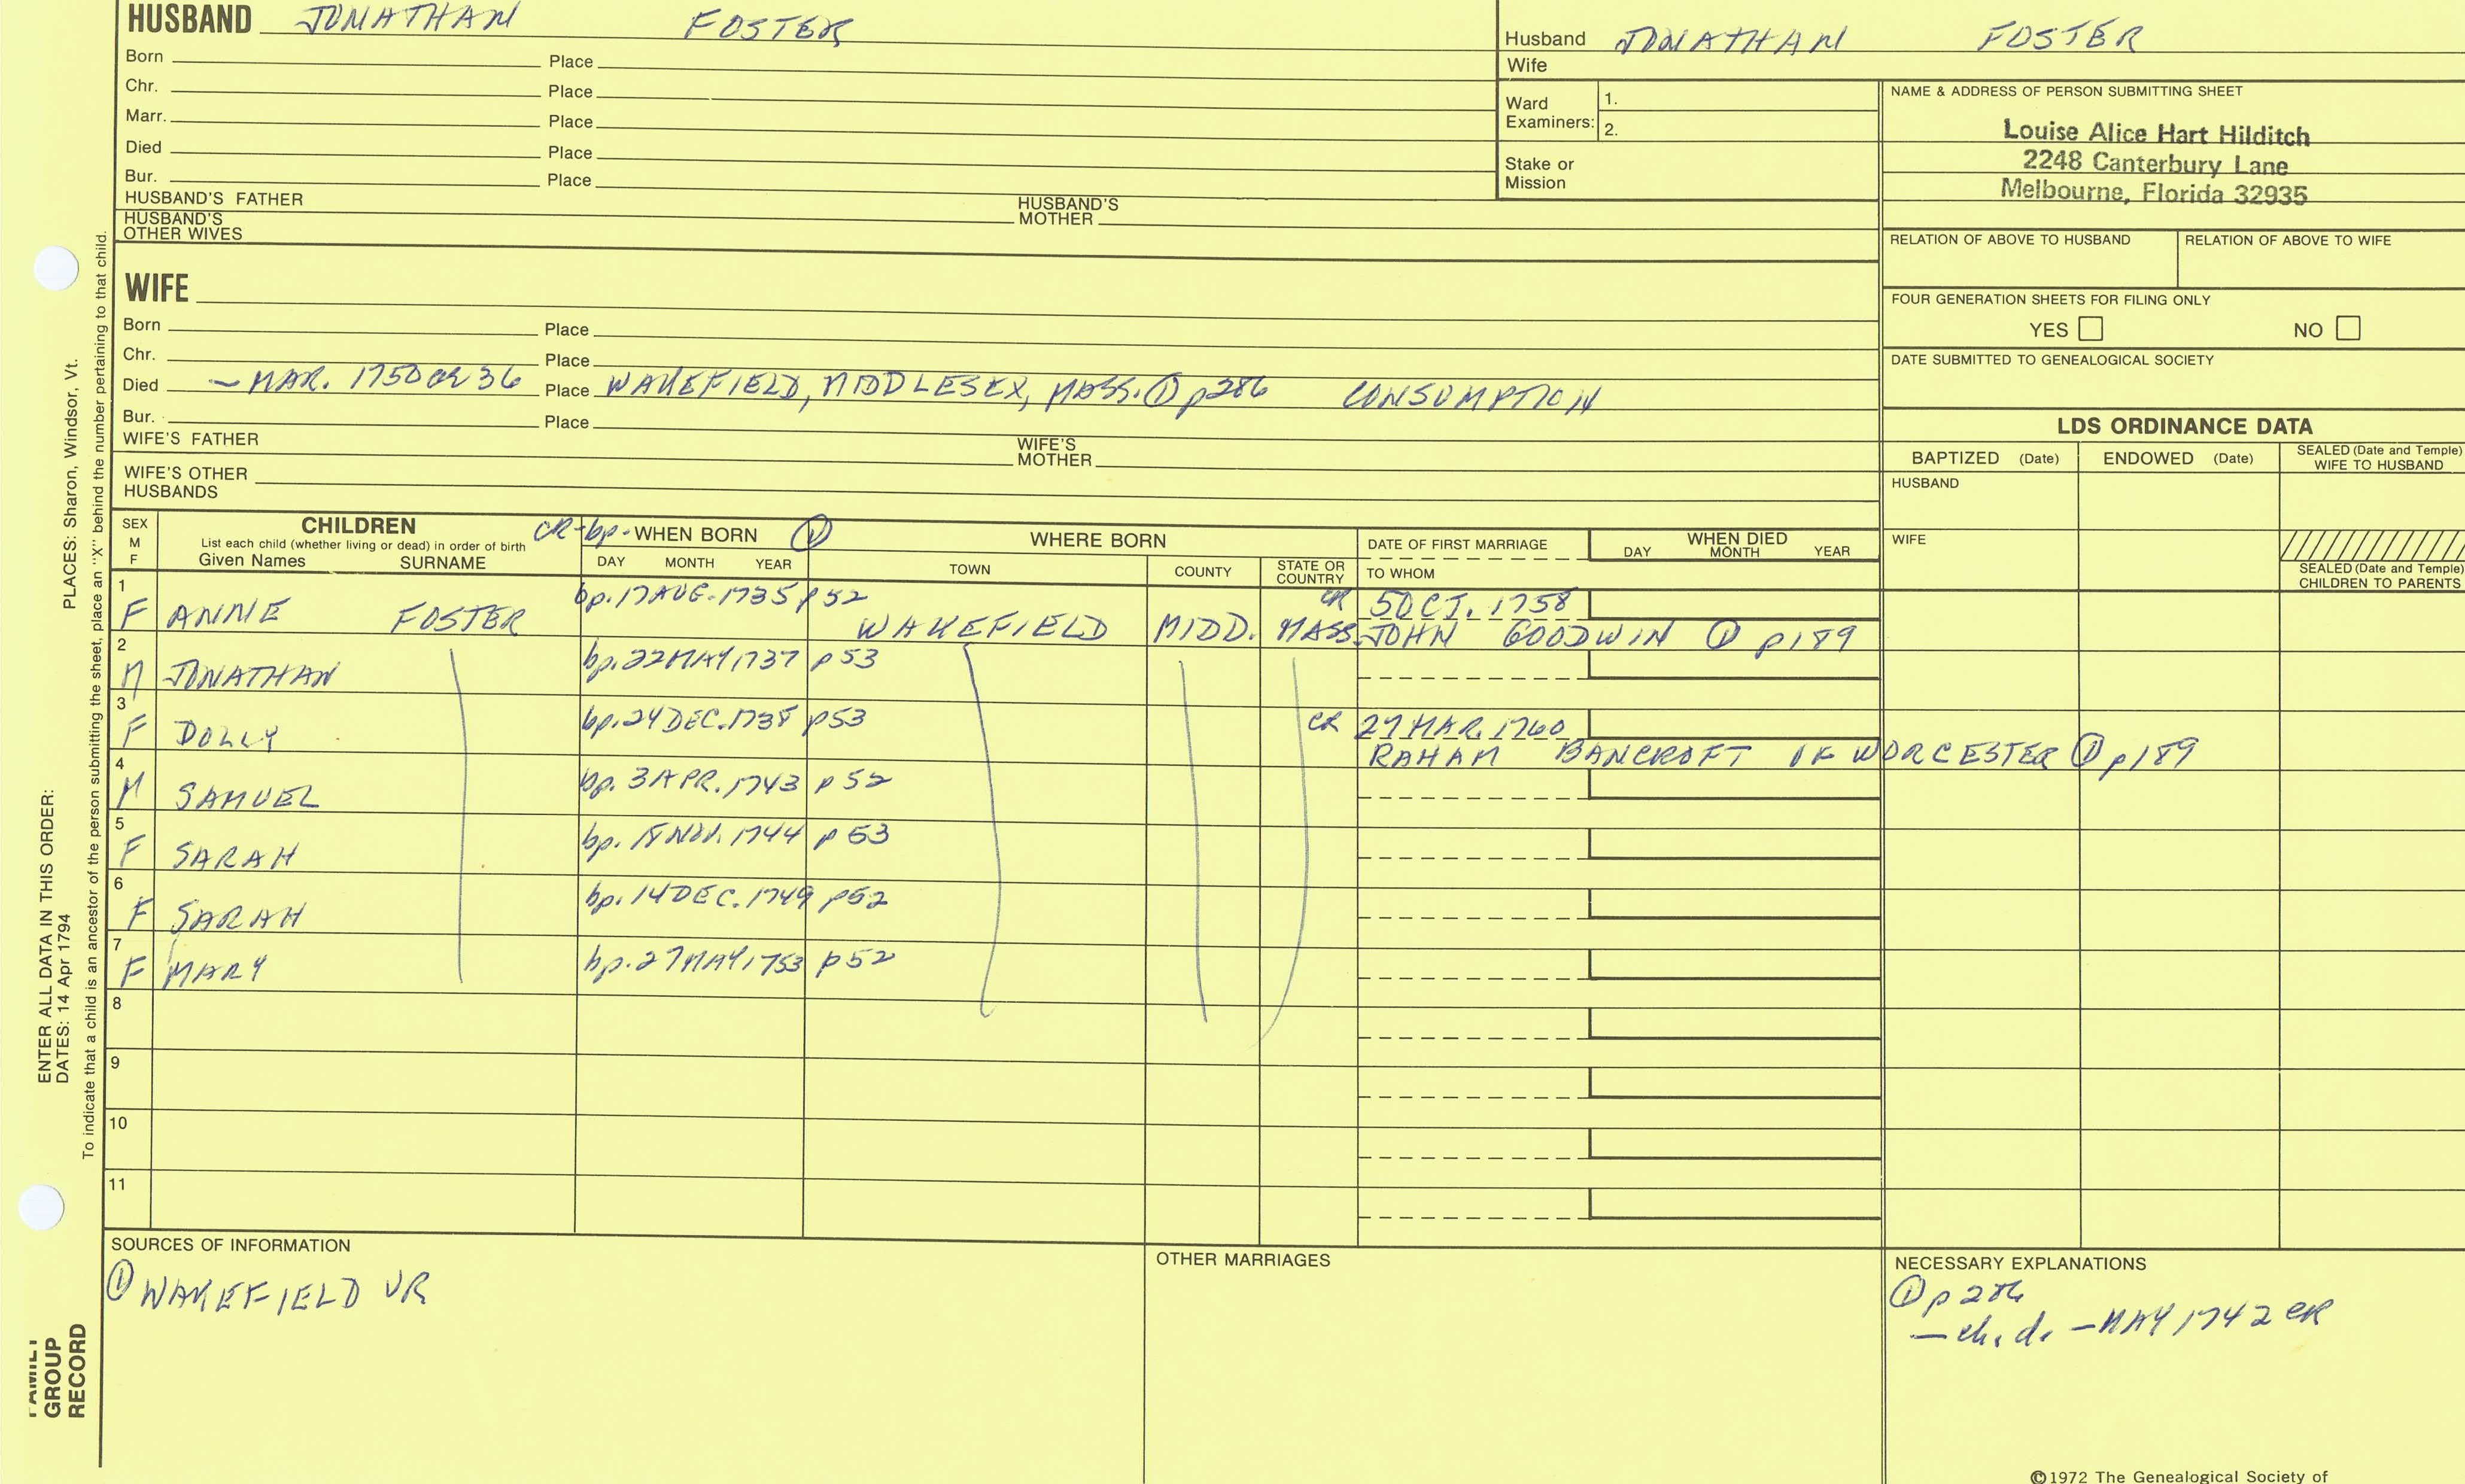 HUSBAND JONATHAN FOSTER
Born Place
Chr. Place
Marr. Place
Died Place
Bur. Place
HUSBAND'S FATHER HUSBAND'S MOTHER
HUSBAND'S OTHER WIVES
Husband JONATHAN FOSTER
Wife
Ward Examiners: 1.
2.
Stake or Mission
NAME & ADDRESS OF PERSON SUBMITTING SHEET
Louise Alice Hart Hilditch
2248 Canterbury Lane
Melbourne, Florida 32935
RELATION OF ABOVE TO HUSBAND RELATION OF ABOVE TO WIFE
FOUR GENERATION SHEETS FOR FILING ONLY
YES NO
DATE SUBMITTED TO GENEALOGICAL SOCIETY
WIFE
Born Place
Chr. Place
Died — MAR. 1750 OR 36 Place WAKEFIELD, MIDDLESEX, MASS. ① p286 CONSUMPTION
Bur. Place
WIFE'S FATHER WIFE'S MOTHER
WIFE'S OTHER HUSBANDS
LDS ORDINANCE DATA
BAPTIZED (Date) ENDOWED (Date) SEALED (Date and Temple) WIFE TO HUSBAND
HUSBAND
WIFE
SEALED (Date and Temple) CHILDREN TO PARENTS
SEX M F
CHILDREN
List each child (whether living or dead) in order of birth
Given Names SURNAME
CR-bp- WHEN BORN ①
DAY MONTH YEAR
WHERE BORN
TOWN COUNTY STATE OR COUNTRY
DATE OF FIRST MARRIAGE
TO WHOM
WHEN DIED
DAY MONTH YEAR
1 F ANNIE FOSTER bp. 17 AUG. 1735 p52 WAKEFIELD MIDD. MASS. CR 5 OCT. 1758
JOHN GOODWIN ① p189
2 M JONATHAN bp. 22 MAY 1737 p53
3 F DOLLY bp. 24 DEC. 1738 p53 CR 27 MAR. 1760
RAHAM BANCROFT OF WORCESTER ① p189
4 M SAMUEL bp. 3 APR. 1743 p52
5 F SARAH bp. 18 NOV. 1744 p53
6 F SARAH bp. 14 DEC. 1749 p52
7 F MARY bp. 27 MAY 1753 p52
8
9
10
11
SOURCES OF INFORMATION
① WAKEFIELD VR
OTHER MARRIAGES
NECESSARY EXPLANATIONS
① p286
— ch. d. — MAY 1742 CR
©1972 The Genealogical Society of
PLACES: Sharon, Windsor, Vt.
To indicate that a child is an ancestor of the person submitting the sheet, place an "X" behind the number pertaining to that child.
ENTER ALL DATA IN THIS ORDER:
DATES: 14 Apr 1794
FAMILY
GROUP
RECORD